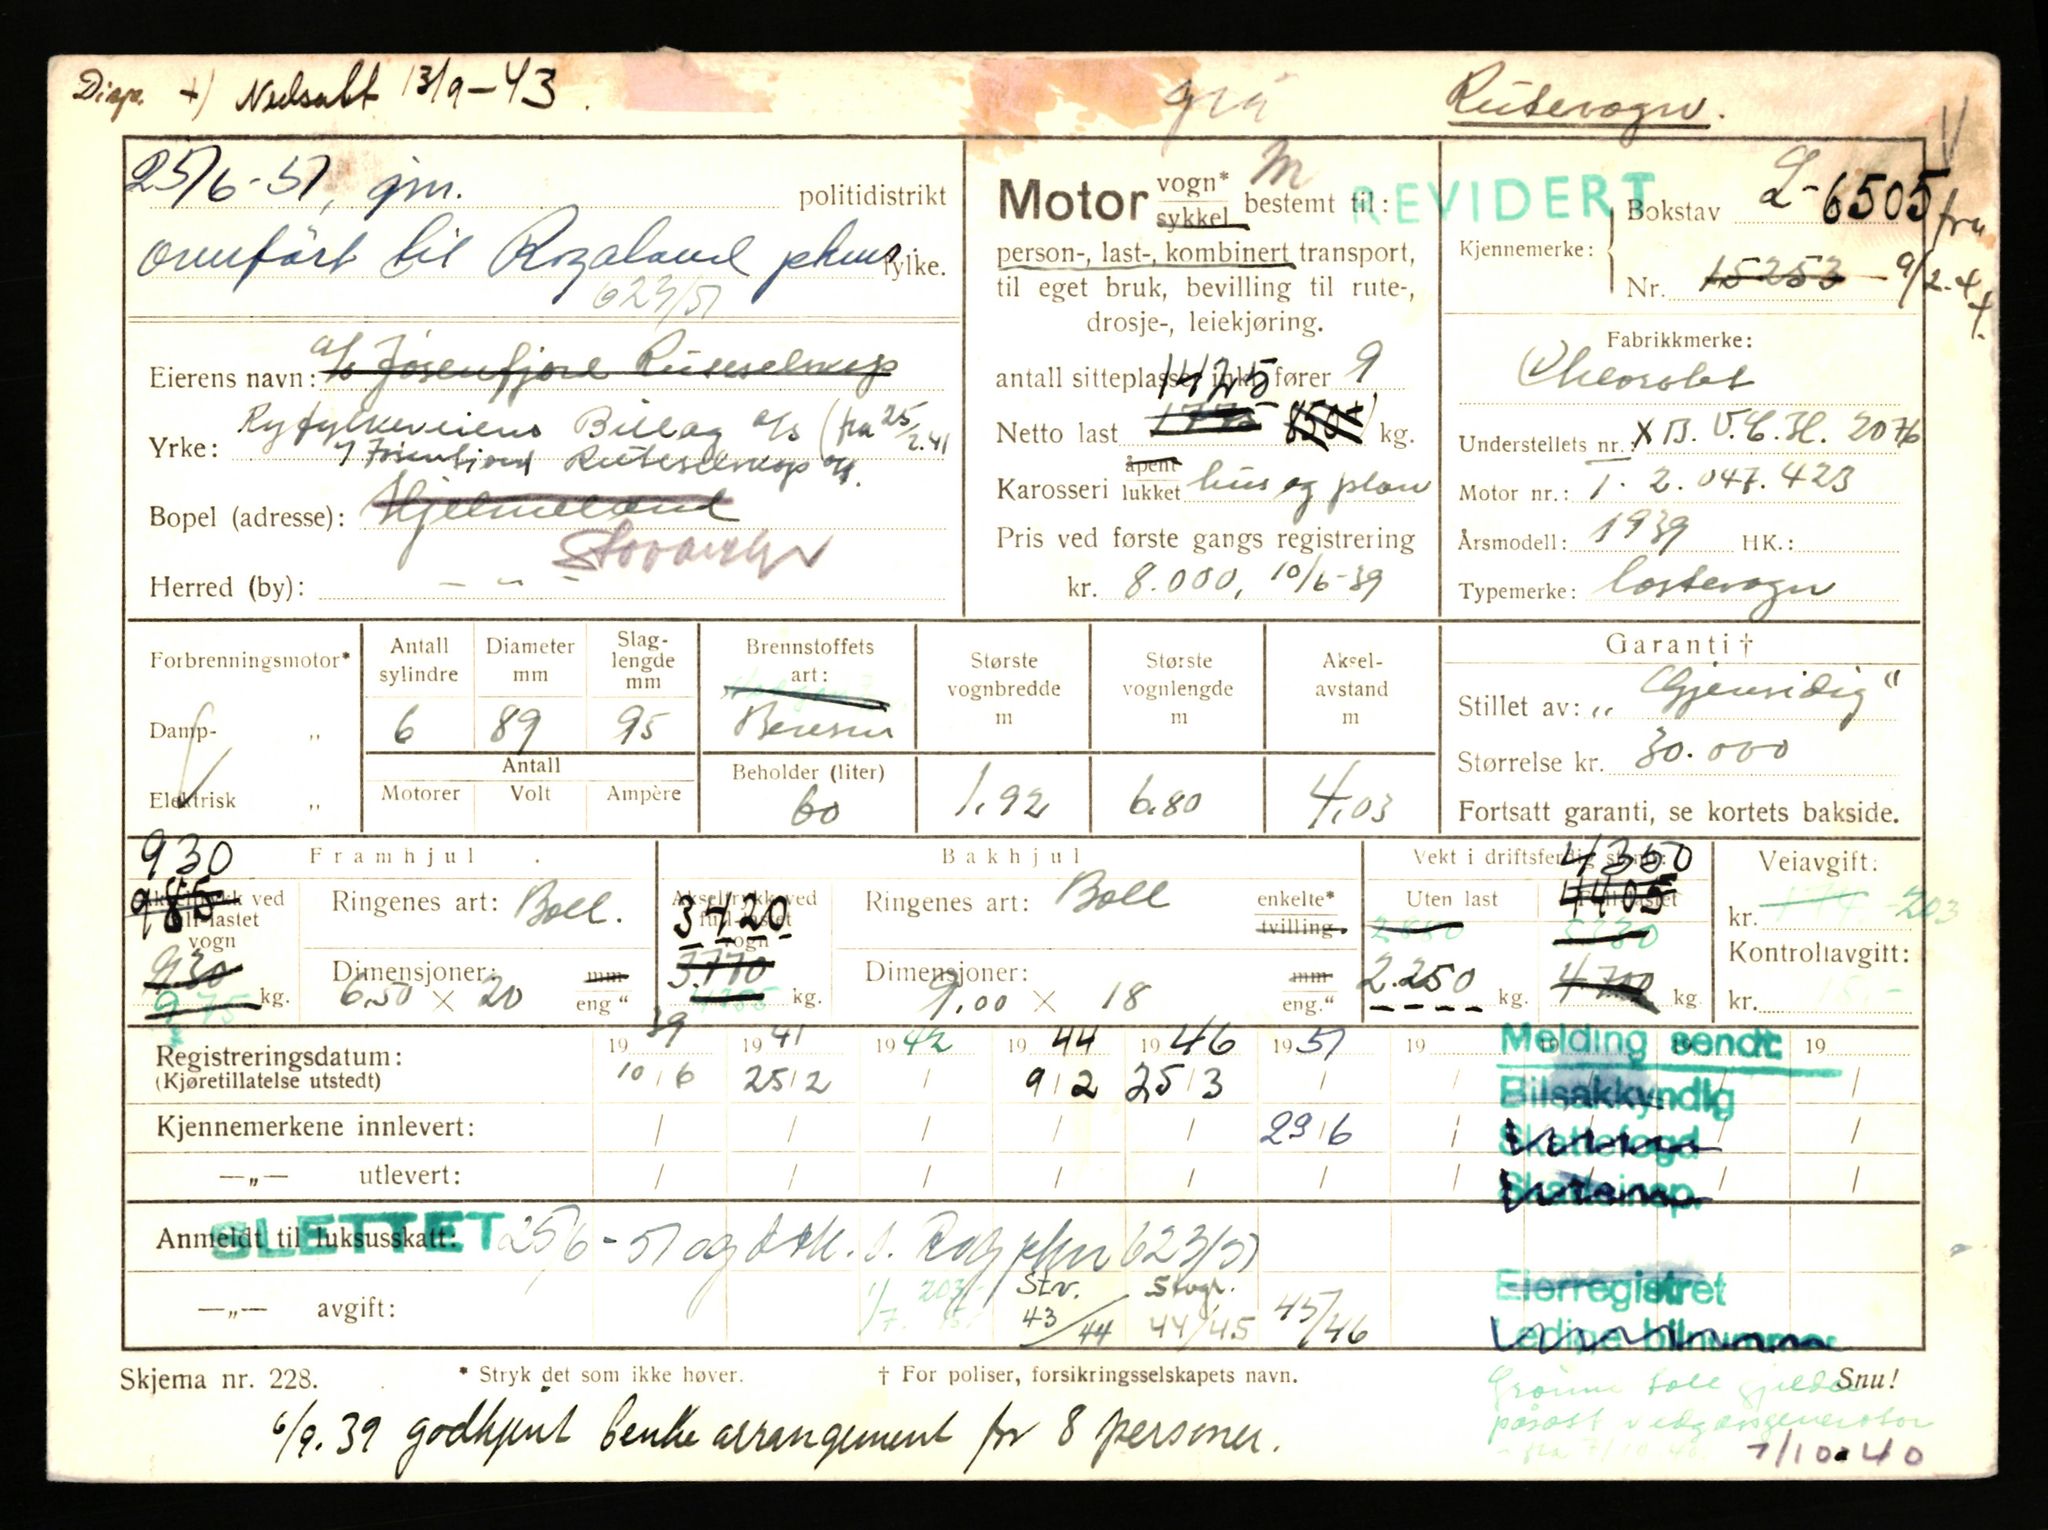 Disp. +) Nedsatt 13/9-43.
grå
Rutevogn.
25/6-51, gjn. politidistrikt
overført til Rogaland pkm fylke.
623/51
Eierens navn: a/s Jøsenfjord Ruteselskap
Ryfylkeveiens Billag a/s (fra 25/2.41
Yrke: Jøsenfjord Ruteselskap a/s.
Bopel (adresse): Hjelmeland
Stavanger
Herred (by): - " -
Motor vogn* sykkel bestemt til:
person-, last-, kombinert transport,
til eget bruk, bevilling til rute-,
drosje-, leiekjøring.
antall sitteplasser inkl. fører 9
1425
Netto last 1775 850 kg.
Karosseri åpent lukket hus og plan
Pris ved første gangs registrering
kr. 8.000, 10/6-39
REVIDERT
Bokstav L-6505 fra
Kjennemerke:
Nr. 15253 9/2-44.
Fabrikkmerke:
Chevrolet
Understellets nr.: X B. V.C.H. 2076
Motor nr.: T. 2.047.423
Årsmodell: 1939 HK.:
Typemerke: lastevogn
Forbrenningsmotor*
Damp- "
Elektrisk "
Antall sylindre 6
Diameter mm 89
Slaglengde mm 95
Antall
Motorer Volt Ampère
Brennstoffets art:
Bensin
Beholder (liter) 60
Største vognbredde m 1.92
Største vognlengde m 6.80
Akselavstand m 4.03
Garanti †
Stillet av: „Gjensidig“
Størrelse kr. 30.000
Fortsatt garanti, se kortets bakside.
Framhjul
930
985
Akseltrykk ved full-lastet vogn
930
975 kg.
Ringenes art: Boll.
Dimensjoner: 6.50 × 20 mm eng "
Bakhjul
Akseltrykk ved full-lastet vogn
3420
3.770
kg.
Ringenes art: Boll enkelte* tvilling.
Dimensjoner: 9.00 × 18 mm eng."
Vekt i driftsferdig stand:
Uten last
2880
2.250 kg.
4350
4405
Full-lastet
5130
4700 kg.
Veiavgift:
kr. 174.- 203
Kontrollavgift:
kr. 15.-
Registreringsdatum: 1939 1941 1942 1944 1946 1951 19 19 19 19
(Kjøretillatelse utstedt) 10/6 25/2 / 9/2 25/3
Kjennemerkene innlevert: 23/6
—„— utlevert:
Melding sendt:
Bilsakkyndig
Skattefogd
Skatteinsp.
Eierregistret
Ledige bilnummer
Anmeldt til luksusskatt: SLETTET 25/6-51 og ovf. t. Rog pkm 623/51
—„— avgift: 1/7. 203 15/ Stv. 43/44 Stvgr. 44/45 45/46
Skjema nr. 228. * Stryk det som ikke høver. † For poliser, forsikringsselskapets navn. Snu!
6/9.39 godkjent benkearrangement for 8 personer.
Grønne tall gjelder
påsatt vedgassgenerator
- fra 7/10-40.
7/10.40